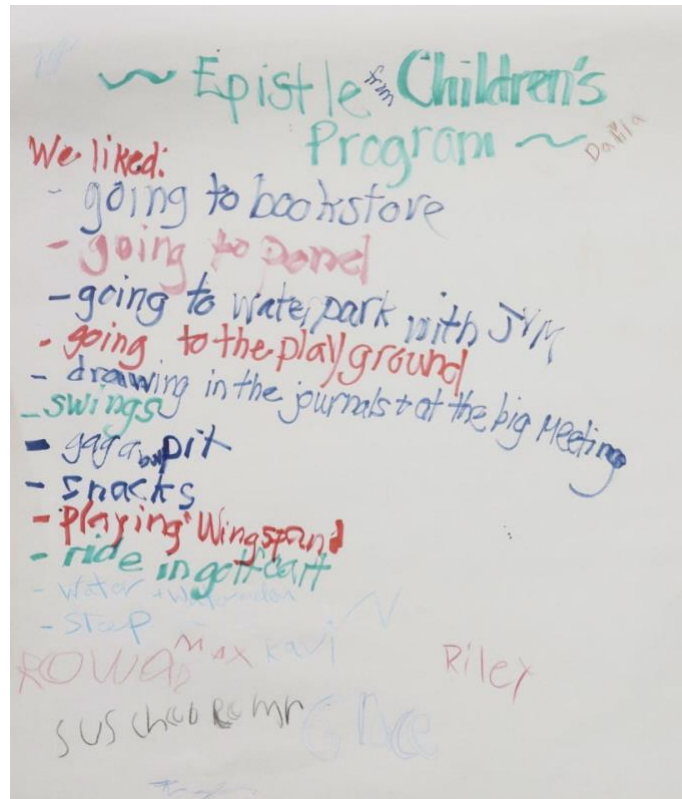 ~ Epistle from Children's
Program ~ Dahlia
We liked:
- going to bookstore
- going to pond
- going to water park with JYM
- going to the playground
- drawing in the journals + at the big Meeting
- swings
- gaga pit
- snacks
- playing Wingspand
- ride in golf cart
- water + watermelon
- sleep
Rowan Max Kavi
Riley
sus